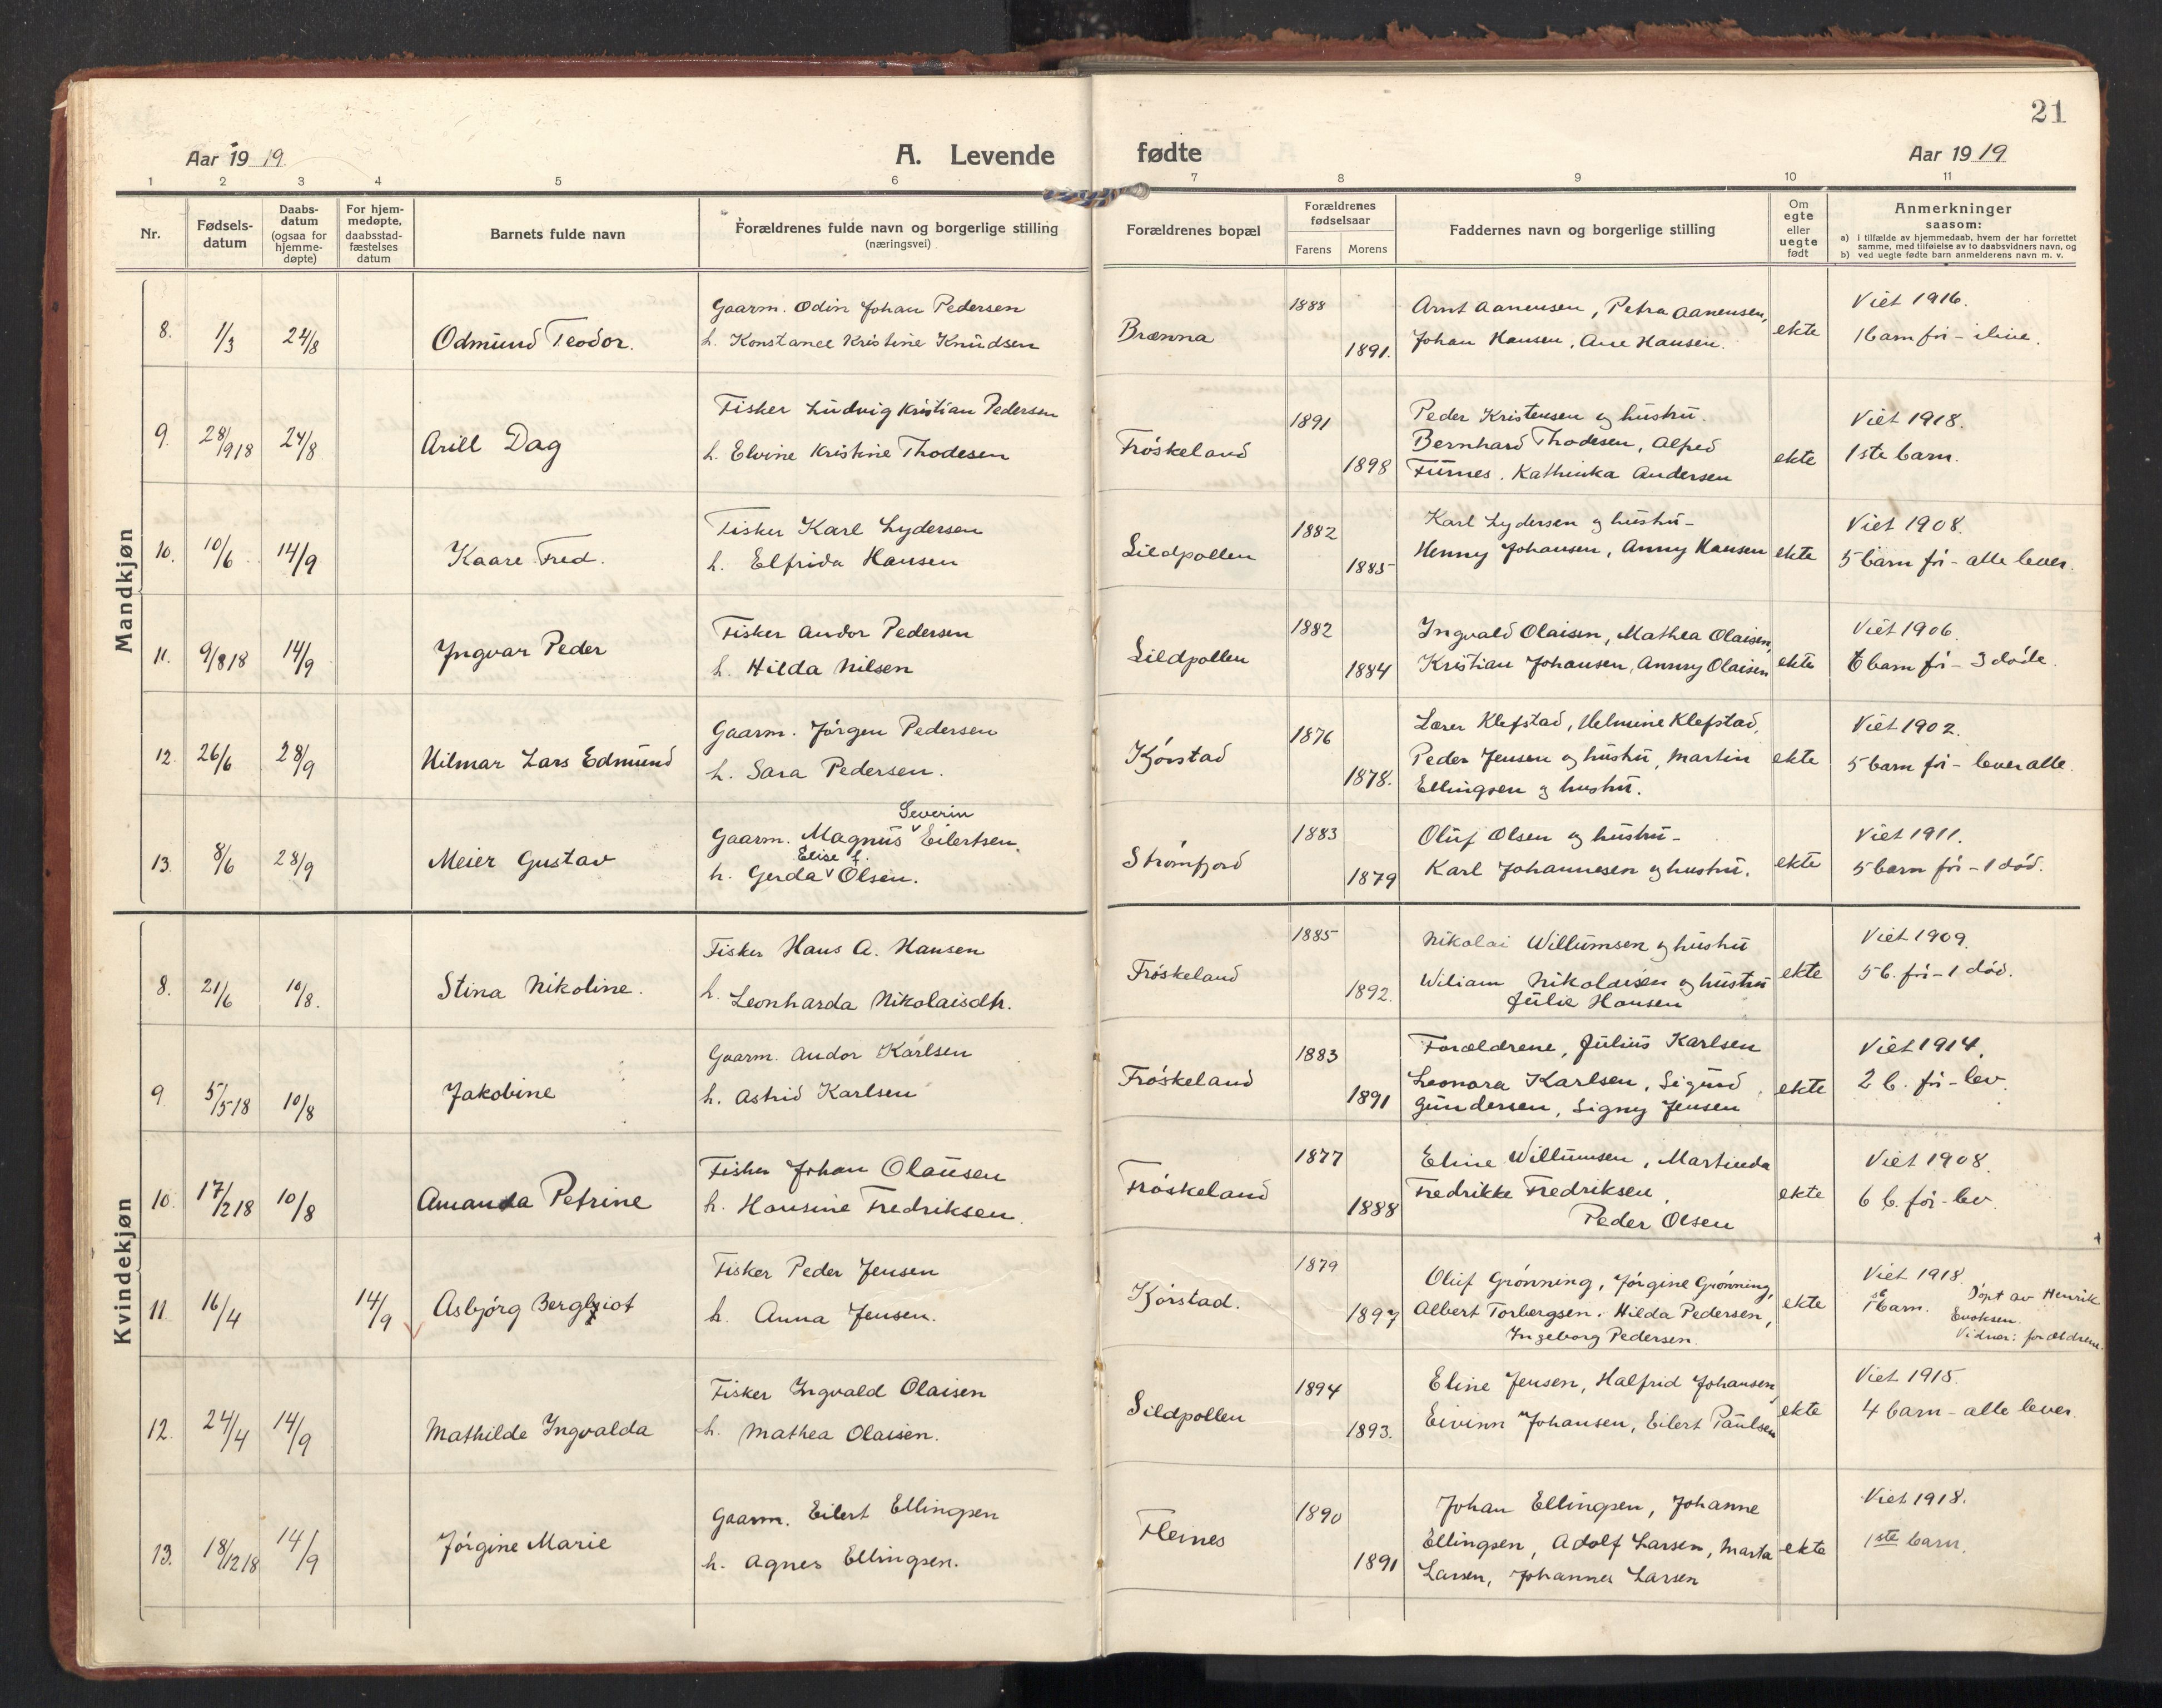 21
Aar 1919
A. Levende
fødte
Aar 1919
1 2 3 4 5 6 7 8 9 10 11
Nr.
Fødsels-
datum
Daabs-
datum
(ogsaa for
hjemme-
døpte)
For hjem-
medøpte,
daabsstad-
fæstelses
datum
Barnets fulde navn
Forældrenes fulde navn og borgerlige stilling
(næringsvei)
Forældrenes bopæl
Forældrenes
fødselsaar
Farens Morens
Faddernes navn og borgerlige stilling
Om
egte
eller
uegte
født
Anmerkninger
saasom:
a) i tilfælde av hjemmedaab, hvem der har forrettet
samme, med tilføielse av to daabsvidners navn, og
b) ved uegte fødte barn anmelderens navn m. v.
Mandkjøn
8. 1/3 24/8 Odmund Teodor.
Gaarm. Odin Johan Pedersen
h. Konstance Kristine Knudsen
Brænna 1888 1891.
Arnt Aanensen, Petra Aanensen,
Johan Hansen, Ane Hansen.
ekte
Viet 1916.
1 barn før - ilive.
9. 28/9 18 24/8 Arill Dag
Fisker Ludvig Kristian Pedersen
h. Elvine Kristine Thodesen
Frøskeland 1891 1898
Peder Kristensen og hustru.
Bernhard Thodesen, Alfred
Furnes. Kathinka Andersen
ekte
Viet 1918.
1ste barn.
10. 10/6 14/9 Kaare Fred.
Fisker Karl Lydersen
h. Elfrida Hansen
Sildpollen 1882 1885
Karl Lydersen og hustru -
Henny Johansen, Anny Hansen
ekte
Viet 1908.
5 barn før - alle lever.
11. 9/8 18 14/9 Ingvar Peder
Fisker Andor Pedersen
h. Hilda Nilsen
Sildpollen 1882 1884
Ingvald Olaisen, Mathea Olaisen,
Kristian Johansen, Annny Olaisen
ekte
Viet 1906.
6 barn før - 3 døde.
12. 26/6 28/9 Hilmar Lars Edmund
Gaarm. Jørgen Pedersen
h. Sara Pedersen.
Kjørstad 1876 1878.
Lærer Klefstad, Helmine Klefstad,
Peder Jensen og hustru, Martin
Ellingsen og hustru.
ekte
Viet 1902.
5 barn før - lever alle.
13. 8/6 28/9 Meier Gustav
Severin
Gaarm. Magnus Eilertsen.
Elise f.
h. Gerda Olsen.
Strømfjord 1883 1879
Oluf Olsen og hustru -
Karl Johannesen og hustru.
ekte
Viet 1911.
5 barn før - 1 død.
Kvindekjøn
8. 21/6 10/8. Stina Nikoline.
Fisker Hans A. Hansen
h. Leonharda Nikolaisdtr.
Frøskeland 1885 1892.
Nikolai Willumsen og hustru
Wiliam Nikolaisen og hustru
Julie Hansen
ekte
Viet 1909.
5 b. før - 1 død.
9 5/5 18 10/8 Jakobine
Gaarm. Andor Karlsen
h. Astrid Karlsen
Frøskeland 1883 1891
Forældrene, Julius Karlsen
Leonora Karlsen, Sigurd
Gundersen, Signy Jensen
ekte
Viet 1914.
2 b. før - lev.
10. 17/2 18 10/8 Amanda Petrine
Fisker Johan Olausen
h. Hansine Fredriksen.
Frøskeland 1877 1888
Eline Willumsen, Martinda
Fredrikke Fredriksen,
Peder Olsen
ekte
Viet 1908.
6 b. før - lev.
11 16/4 14/9 Asbjørg Bergliot
Fisker Peder Jensen
h. Anna Jensen.
Kjørstad. 1879 1897
Oluf Grønning, Jørgine Grønning,
Albert Torbergsen. Hilda Pedersen,
Ingeborg Pedersen.
ekte
Viet 1918.
1st barn. Døpt av Henrik
Enoksen.
Vidner: forældrene.
12. 24/4 14/9 Mathilde Ingvalda
Fisker Ingvald Olaisen
h. Mathea Olaisen.
Sildpollen 1894 1893.
Eline Jensen, Halfrid Johansen,
Eivinn Johansen, Eilert Paulsen
ekte
Viet 1915.
4 barn - alle lever.
13. 18/12 18 14/9 Jørgine Marie
Gaarm. Eilert Ellingsen
h. Agnes Ellingsen.
Fleines 1890 1891
Johan Ellingsen, Johanne
Ellingsen, Adolf Larsen, Marta
Larsen, Johanna Larsen
ekte
Viet 1918.
1ste barn.